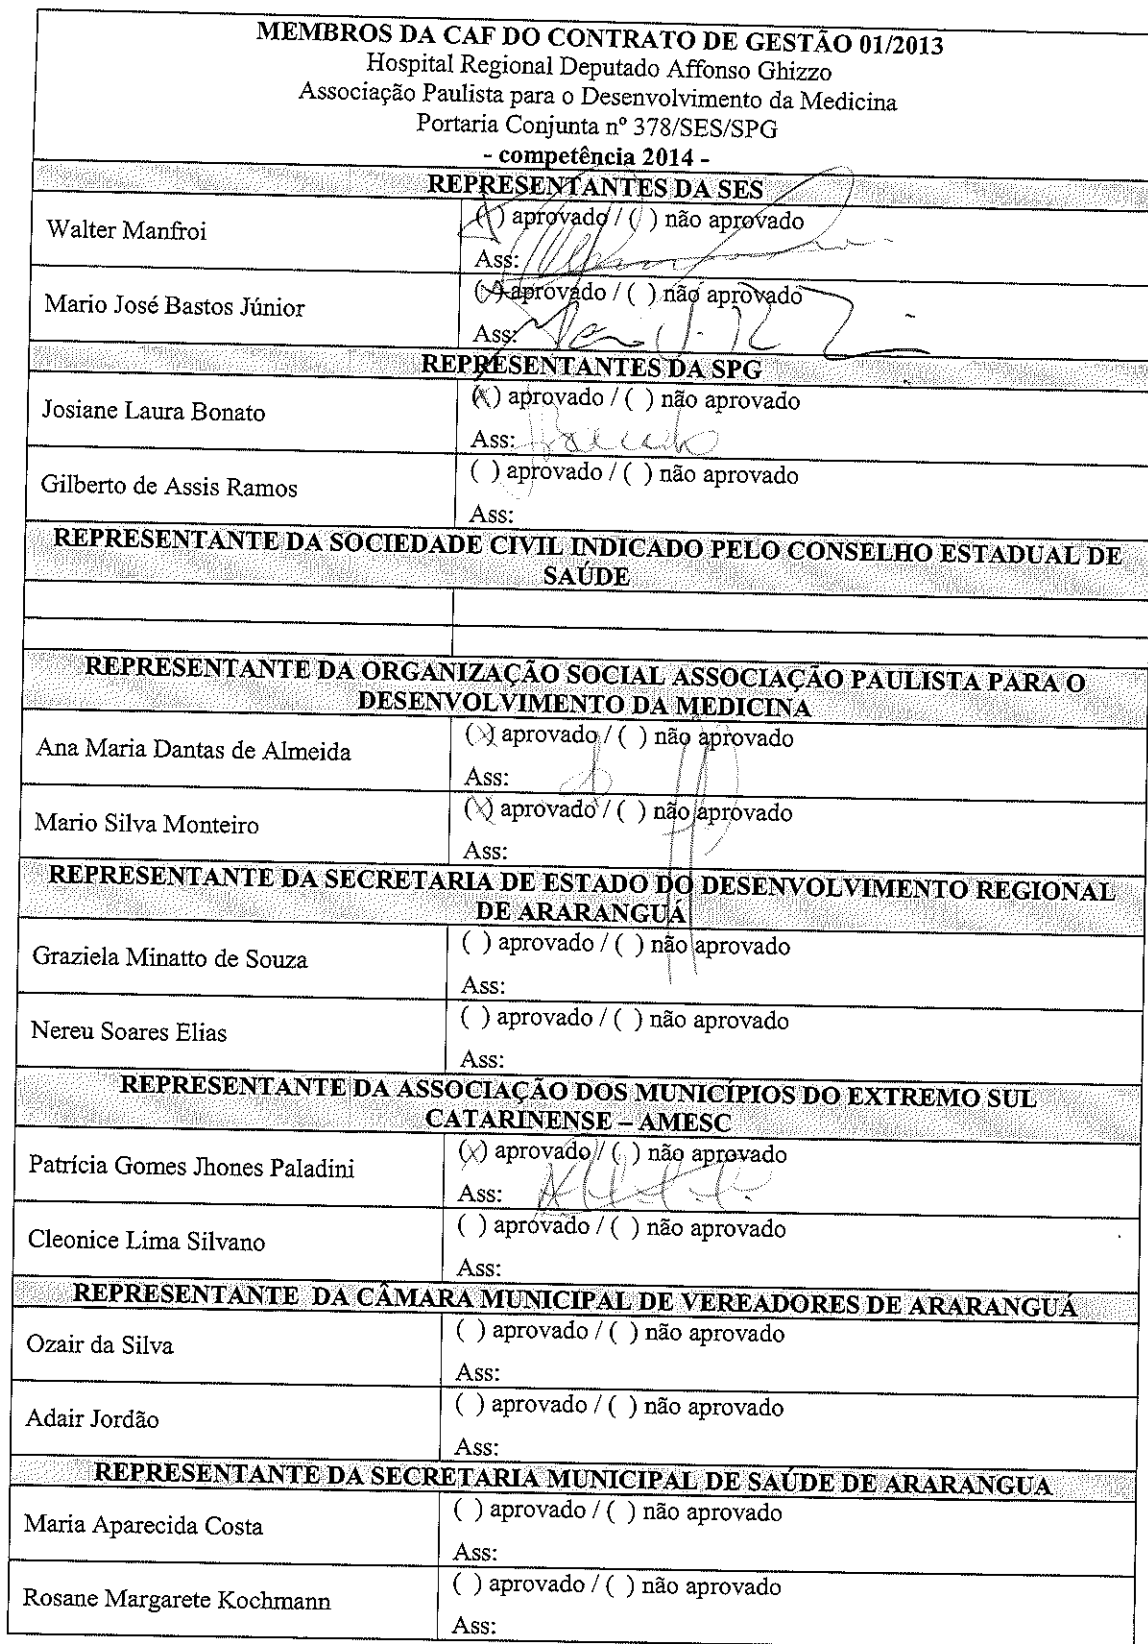 MEMBROS DA CAF DO CONTRATO DE GESTÃO 01/2013
Hospital Regional Deputado Affonso Ghizzo
Associação Paulista para o Desenvolvimento da Medicina
Portaria Conjunta nº 378/SES/SPG
- competência 2014 -
REPRESENTANTES DA SES
Walter Manfroi
(X) aprovado / ( ) não aprovado
Ass:
Mario José Bastos Júnior
(X) aprovado / ( ) não aprovado
Ass:
REPRESENTANTES DA SPG
Josiane Laura Bonato
(X) aprovado / ( ) não aprovado
Ass:
Gilberto de Assis Ramos
( ) aprovado / ( ) não aprovado
Ass:
REPRESENTANTE DA SOCIEDADE CIVIL INDICADO PELO CONSELHO ESTADUAL DE
SAÚDE
REPRESENTANTE DA ORGANIZAÇÃO SOCIAL ASSOCIAÇÃO PAULISTA PARA O
DESENVOLVIMENTO DA MEDICINA
Ana Maria Dantas de Almeida
(X) aprovado / ( ) não aprovado
Ass:
Mario Silva Monteiro
(X) aprovado / ( ) não aprovado
Ass:
REPRESENTANTE DA SECRETARIA DE ESTADO DO DESENVOLVIMENTO REGIONAL
DE ARARANGUÁ
Graziela Minatto de Souza
( ) aprovado / ( ) não aprovado
Ass:
Nereu Soares Elias
( ) aprovado / ( ) não aprovado
Ass:
REPRESENTANTE DA ASSOCIAÇÃO DOS MUNICÍPIOS DO EXTREMO SUL
CATARINENSE – AMESC
Patrícia Gomes Jhones Paladini
(X) aprovado / ( ) não aprovado
Ass:
Cleonice Lima Silvano
( ) aprovado / ( ) não aprovado
Ass:
REPRESENTANTE DA CÂMARA MUNICIPAL DE VEREADORES DE ARARANGUÁ
Ozair da Silva
( ) aprovado / ( ) não aprovado
Ass:
Adair Jordão
( ) aprovado / ( ) não aprovado
Ass:
REPRESENTANTE DA SECRETARIA MUNICIPAL DE SAÚDE DE ARARANGUA
Maria Aparecida Costa
( ) aprovado / ( ) não aprovado
Ass:
Rosane Margarete Kochmann
( ) aprovado / ( ) não aprovado
Ass: